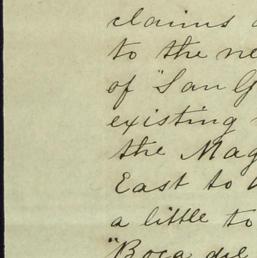 claims
to the ne
of "San G
existing
the Mag
East to
a little to
"Boca del